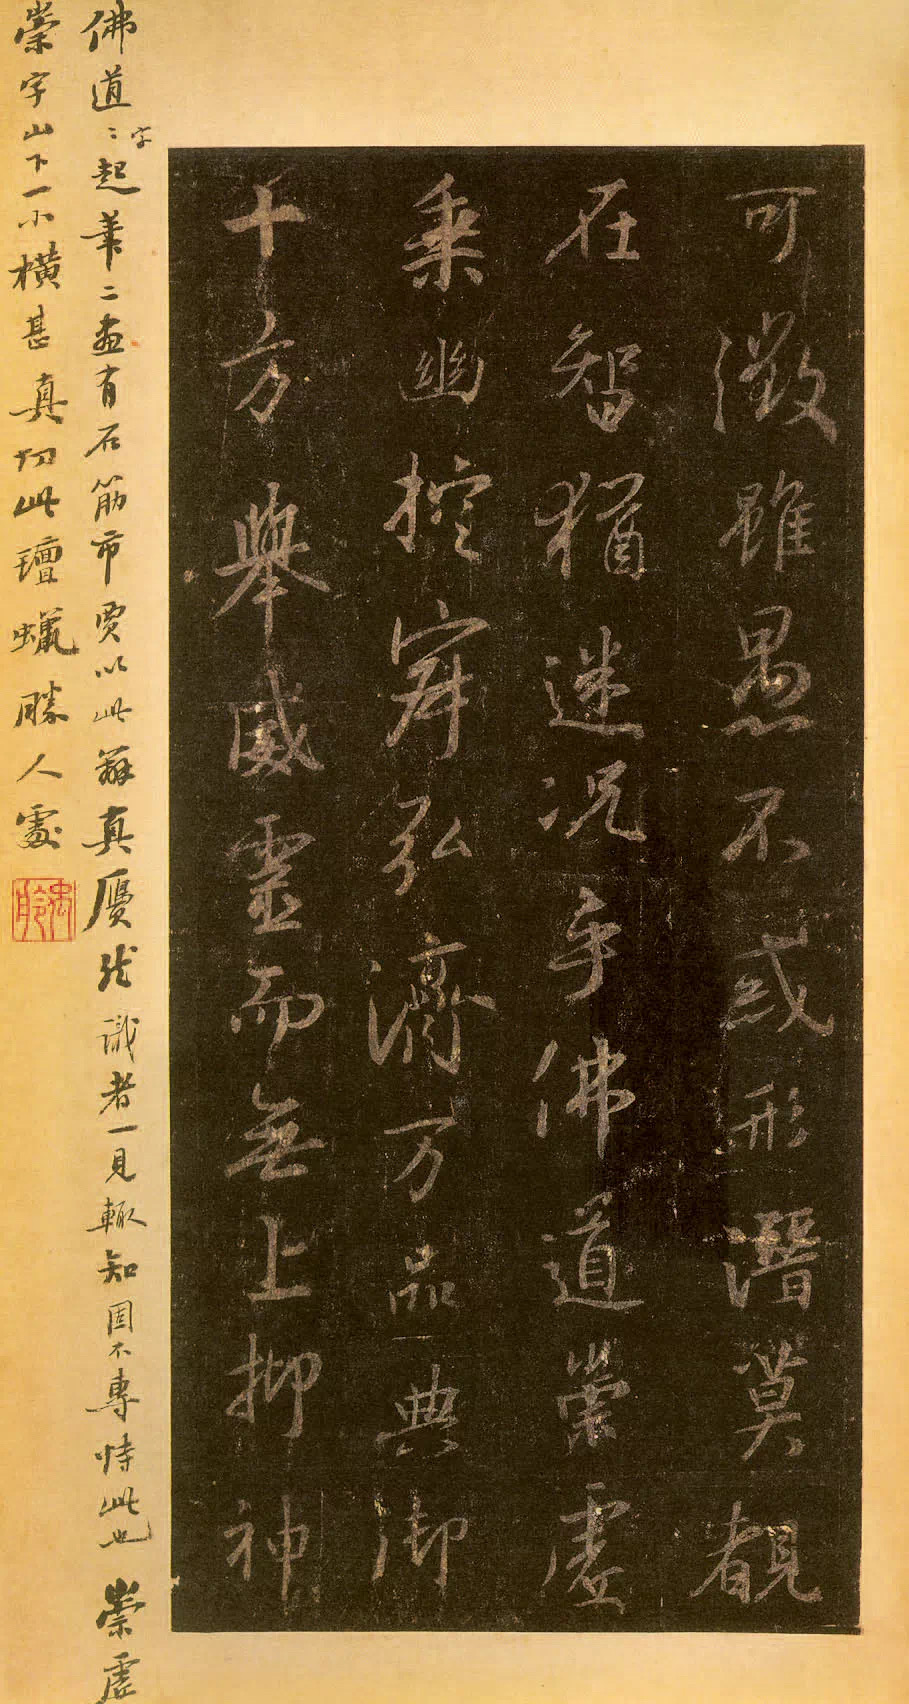 可徵雖愚不惑形潛莫覩
在智猶迷況乎佛道崇虛
乘幽控寂弘濟万品典御
十方舉威靈而無上抑神
佛道道字起筆二畫有石筋市賈以此辨真贋然識者一見輒知固不專恃此也 崇虛
崇字山下一小橫甚真切此氊蠟勝人處